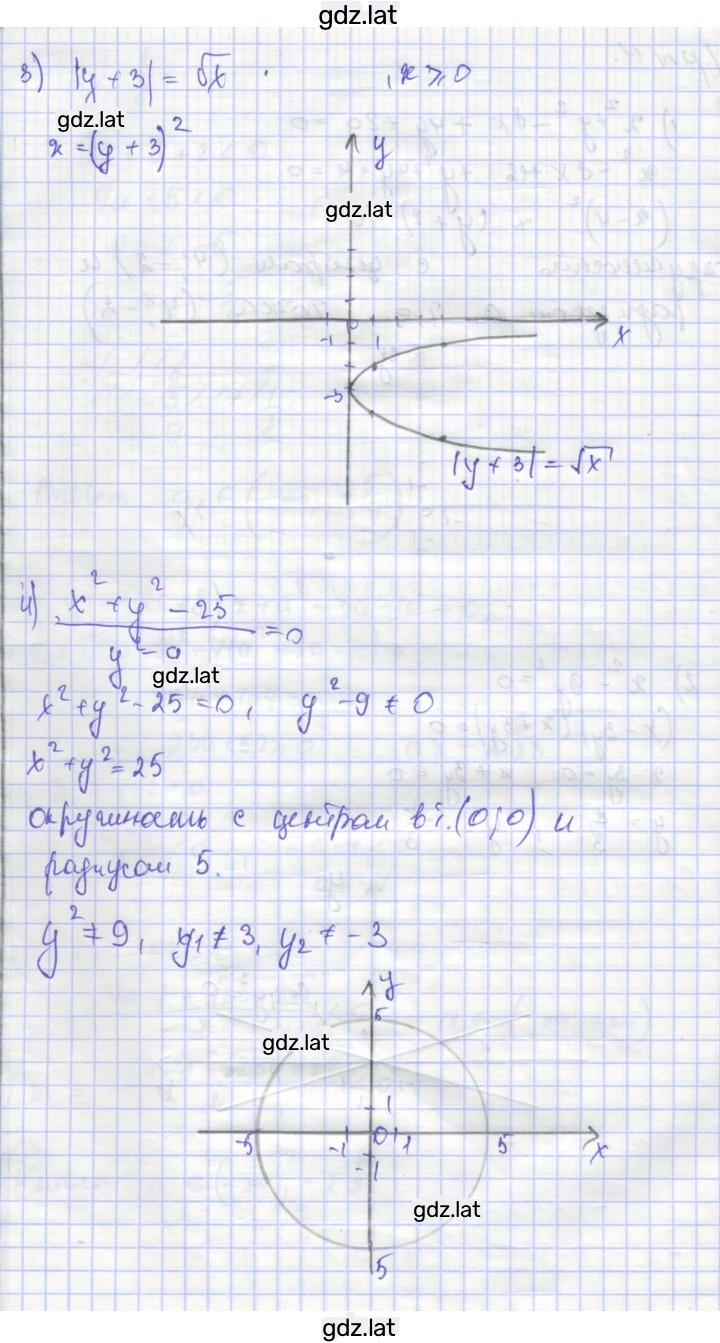 gdz.lat
3) |y + 3| = √x , x ⩾ 0
gdz.lat
x = (y + 3)²
y
gdz.lat
-1 0 1 x
-3
|y + 3| = √x
4) x² + y² - 25
= 0
y² - 9
gdz.lat
x² + y² - 25 = 0, y² - 9 ≠ 0
x² + y² = 25
окружность с центром в т. (0; 0) и
радиусом 5.
y² ≠ 9, y₁ ≠ 3, y₂ ≠ -3
y
5
gdz.lat
1
-5 -1 0 1 5 x
-1
gdz.lat
5
gdz.lat